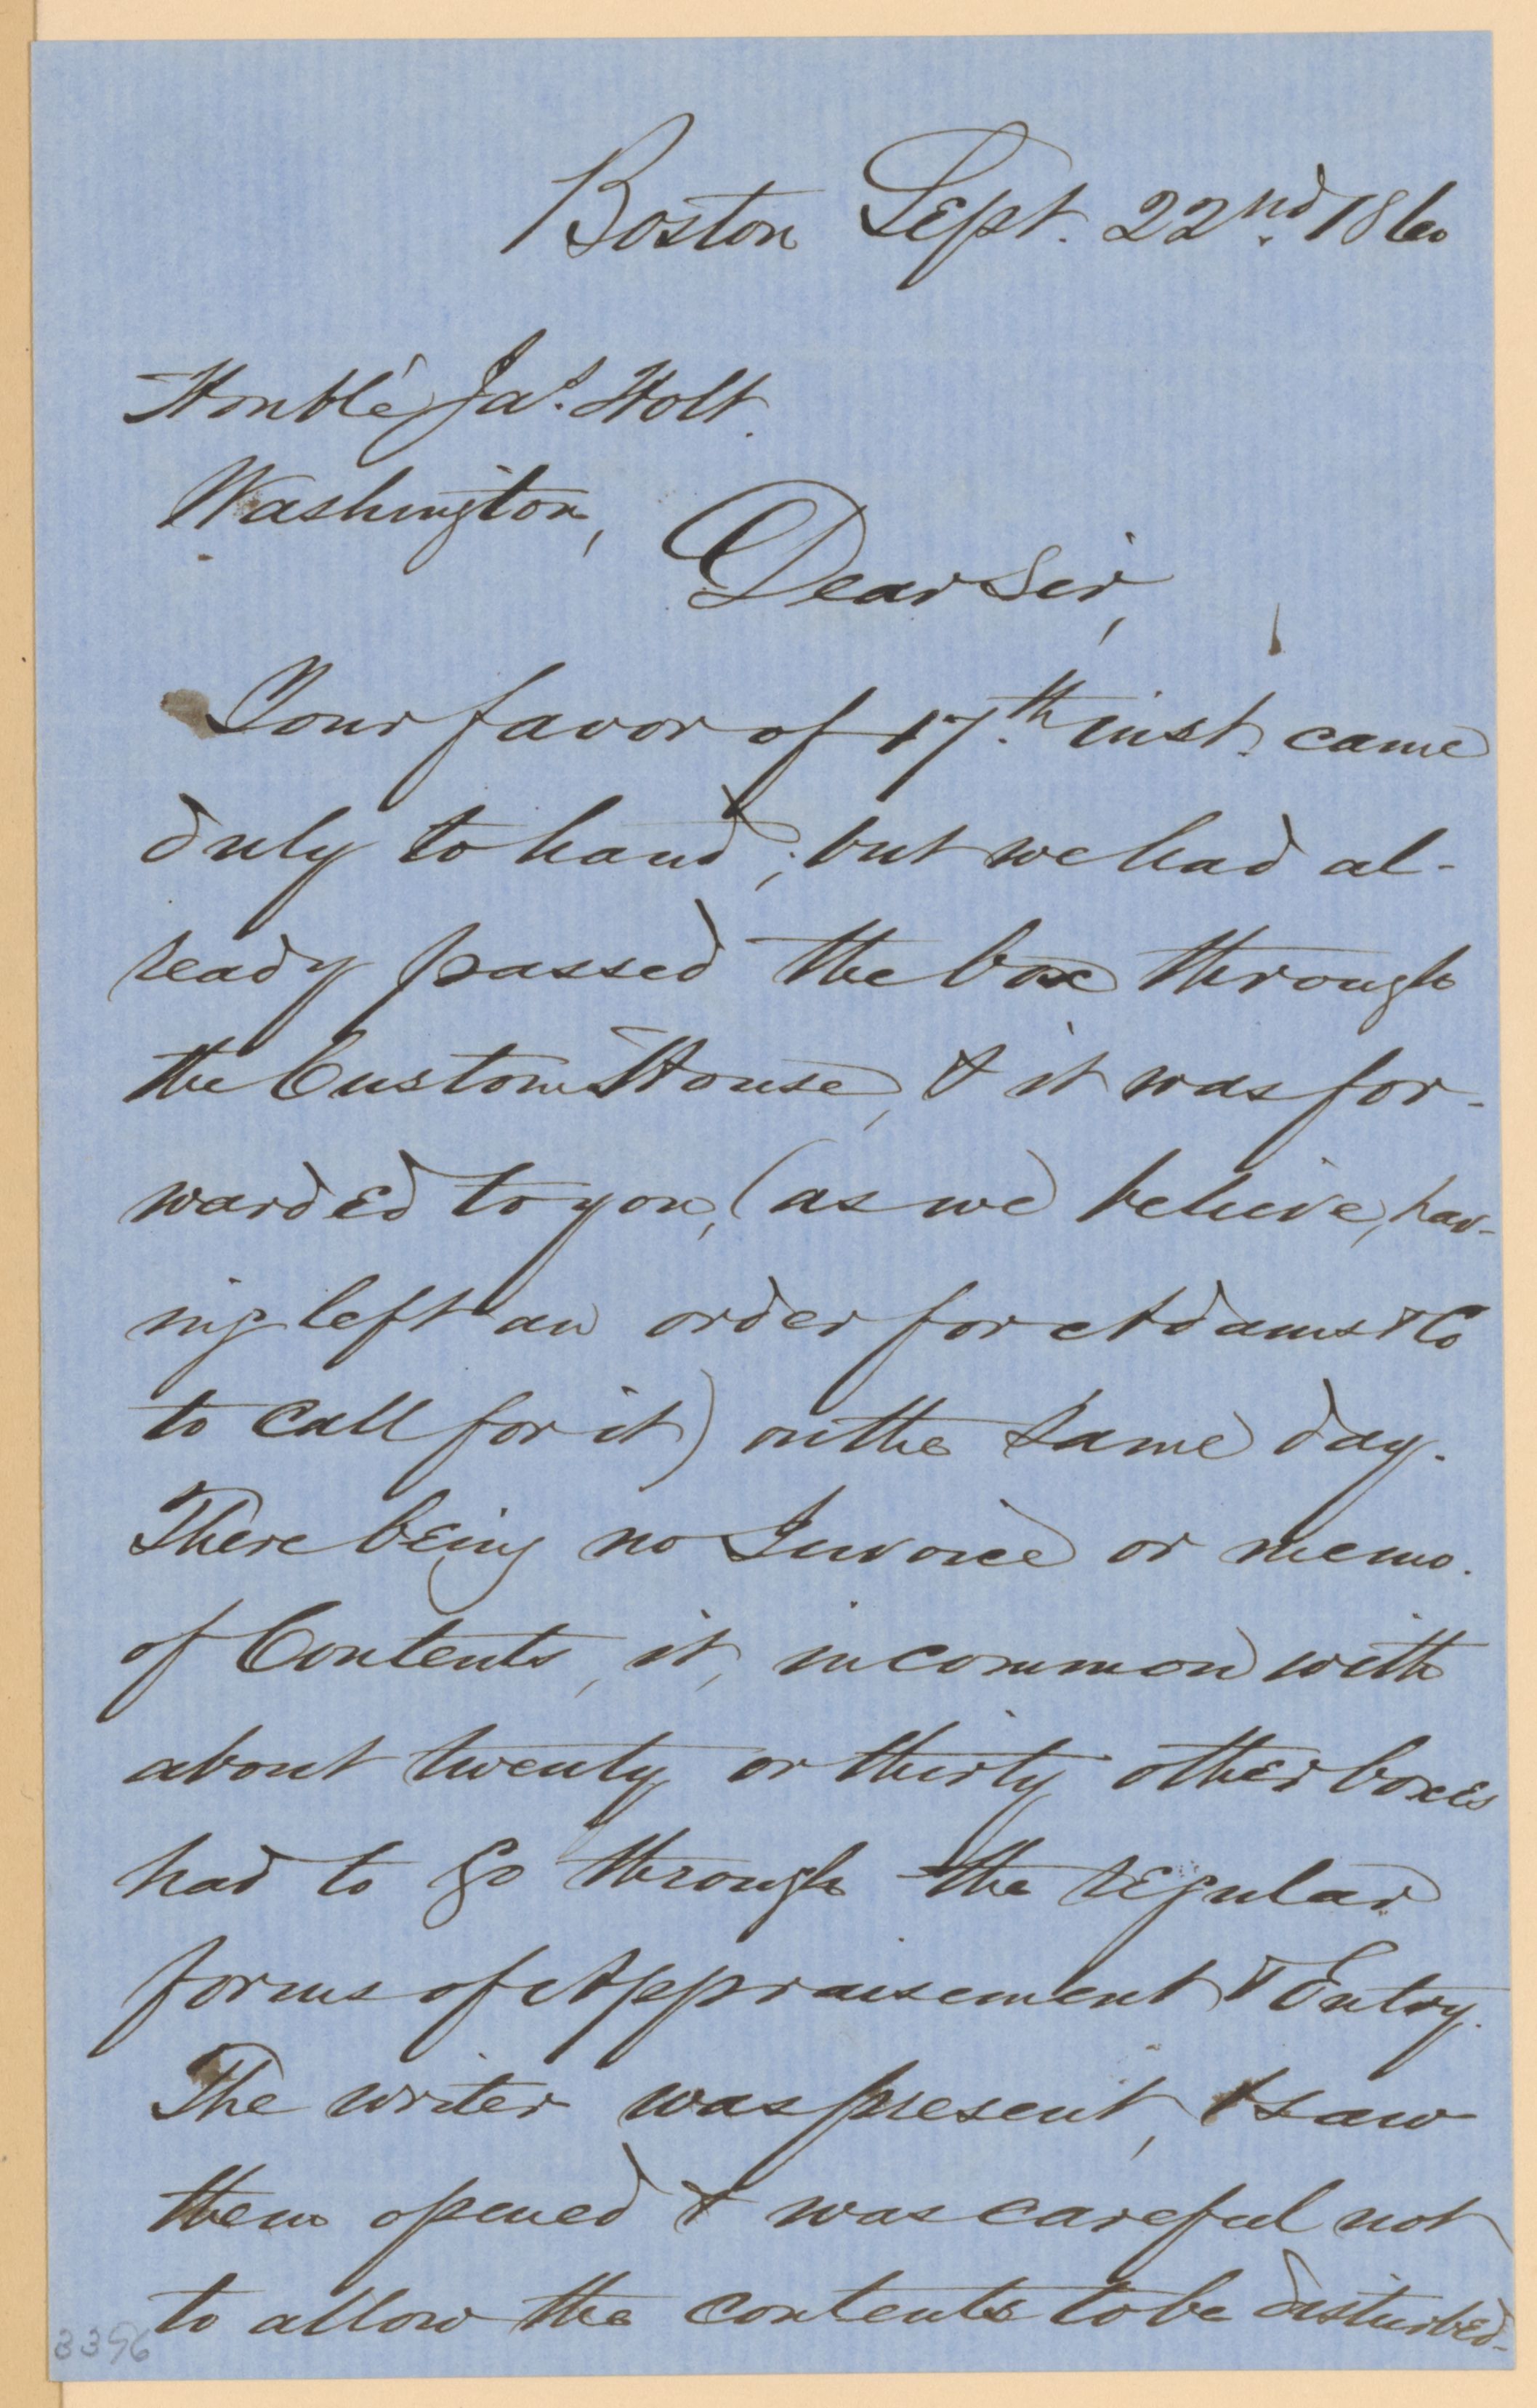 Boston Sept. 22nd. 1860
Honble Jas. Holt.
Washington,
Dear Sir,
Your favor of 17th. inst. came
duly to hand; but we had al-
ready passed the box through
the Custom House, & it was for-
warded to you, (as we believe, hav-
ing left an order for Adams & Co
to call for it) on the same day.
There being no Invoice or memo.
of Contents, it, in common with
about twenty or thirty other boxes
had to go through the regular
forms of Appraisement & Entry.
The writer was present, & saw
them opened & was careful not
to allow the contents to be disturbed-
3396